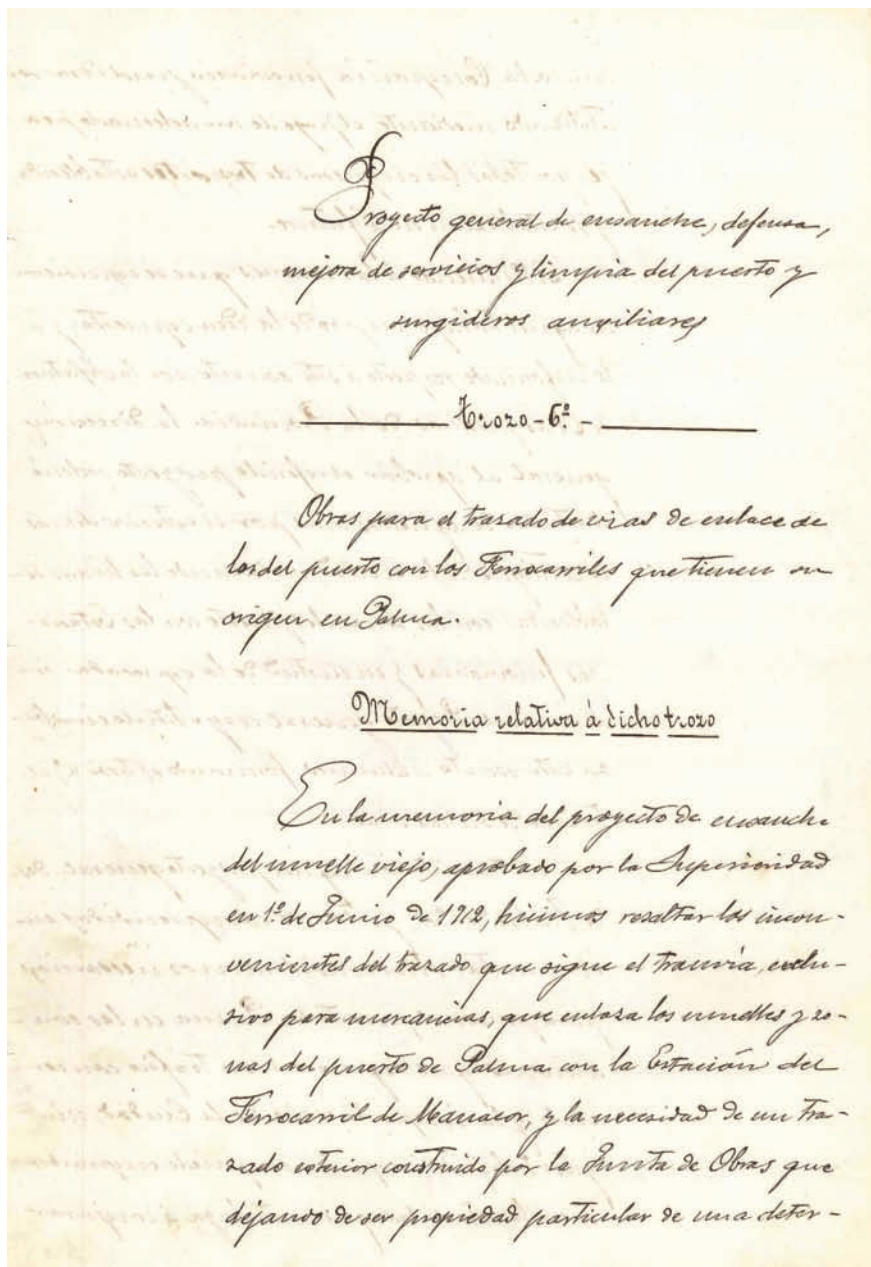 Proyecto general de ensanche, defensa,
mejora de servicios y limpia del puerto y
surgideros auxiliares
Trozo - 6º -
Obras para el trazado de vias de enlace de
las del puerto con los Ferrocarriles que tienen su
origen en Palma.
Memoria relativa á dicho trozo
En la memoria del proyecto de ensanche
del muelle viejo, aprobado por la Superioridad
en 1º de Junio de 1912, hicimos resaltar los incon-
venientes del trazado que sigue el tranvía, exclu-
sivo para mercancias, que enlaza los muelles y zo-
nas del puerto de Palma con la Estación del
Ferrocarril de Manacor, y la necesidad de un tra-
zado exterior construido por la Junta de Obras que
dejando de ser propiedad particular de una deter-